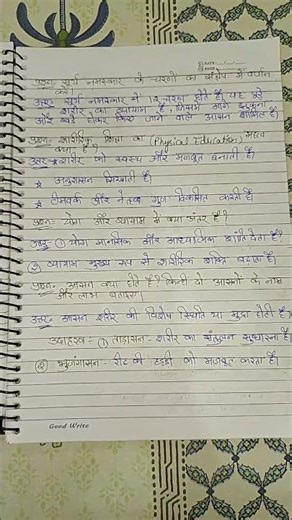 प्रश्न:- सूर्य नमस्कार के चरणों का संक्षेप में वर्णन
करें।
उत्तर:- सूर्य नमस्कार में 12 चरण होते हैं। यह पूरे
शरीर का व्यायाम है, जिसमें आगे झुकना
और खड़े होकर किए जाने वाले आसन शामिल हैं।
प्रश्न:- शारीरिक शिक्षा का (Physical Education) महत्व
क्या है?
उत्तर:- ★ शरीर को स्वस्थ और मजबूत बनाती है।
★ अनुशासन सिखाती है।
★ टीमवर्क और नेतृत्व गुण विकसित करती है।
प्रश्न:- योग और व्यायाम में क्या अंतर है?
उत्तर:- ① योग मानसिक और आध्यात्मिक शांति देता है।
② व्यायाम मुख्य रूप से शारीरिक शक्ति बढ़ाता है।
प्रश्न:- आसन क्या होते हैं? किन्हीं दो आसनों के नाम
और लाभ बताइए।
उत्तर:- आसन शरीर की विशेष स्थिति या मुद्रा होती है।
उदाहरण:- ① ताड़ासन - शरीर का संतुलन सुधारना है।
② भुजंगासन - रीढ़ की हड्डी को मजबूत करता है।
Good Write